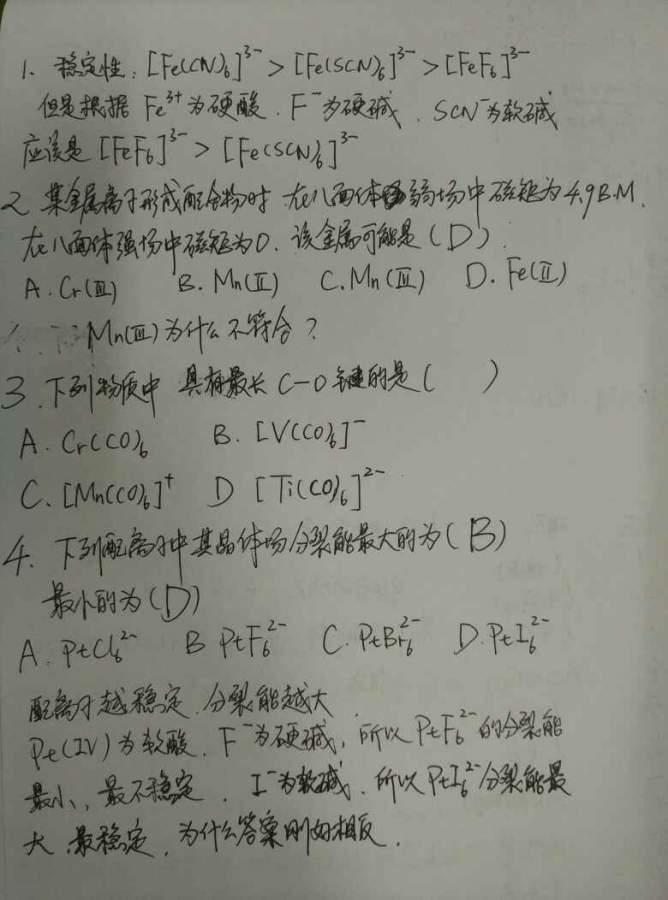 1. 稳定性：[Fe(CN)₆]³⁻ > [Fe(SCN)₆]³⁻ > [FeF₆]³⁻
但是根据 Fe³⁺为硬酸．F⁻为硬碱．SCN⁻为软碱
应该是 [FeF₆]³⁻ > [Fe(SCN)₆]³⁻
2 某金属离子形成配合物时 在八面体弱场中磁矩为4.9B.M.
在八面体强场中磁矩为0．该金属可能是（D）．
A. Cr(Ⅲ) B. Mn(Ⅱ) C. Mn(Ⅲ) D. Fe(Ⅱ)
Mn(Ⅲ)为什么不符合？
3．下列物质中 具有最长 C-O键的是（ ）
A. Cr(CO)₆ B. [V(CO)₆]⁻
C. [Mn(CO)₆]⁺ D [Ti(CO)₆]²⁻
4. 下列配离子中其晶体场分裂能最大的为（B）
最小的为（D）
A. PtCl₆²⁻ B PtF₆²⁻ C. PtBr₆²⁻ D. PtI₆²⁻
配离子越稳定．分裂能越大
Pt(IV)为软酸．F⁻为硬碱，所以 PtF₆²⁻的分裂能
最小，最不稳定．I⁻为软碱．所以 PtI₆²⁻分裂能最
大．最稳定．为什么答案刚好相反．